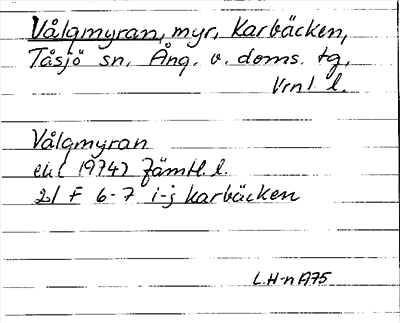 Vålgmyran, myr, Karbäcken,
Tåsjö sn, Ång. v. doms. tg,
Vrnl. l.
Vålgmyran
ek (1974) Jämtl. l.
21 F 6-7 i-j Karbäcken
L.H-n 1975